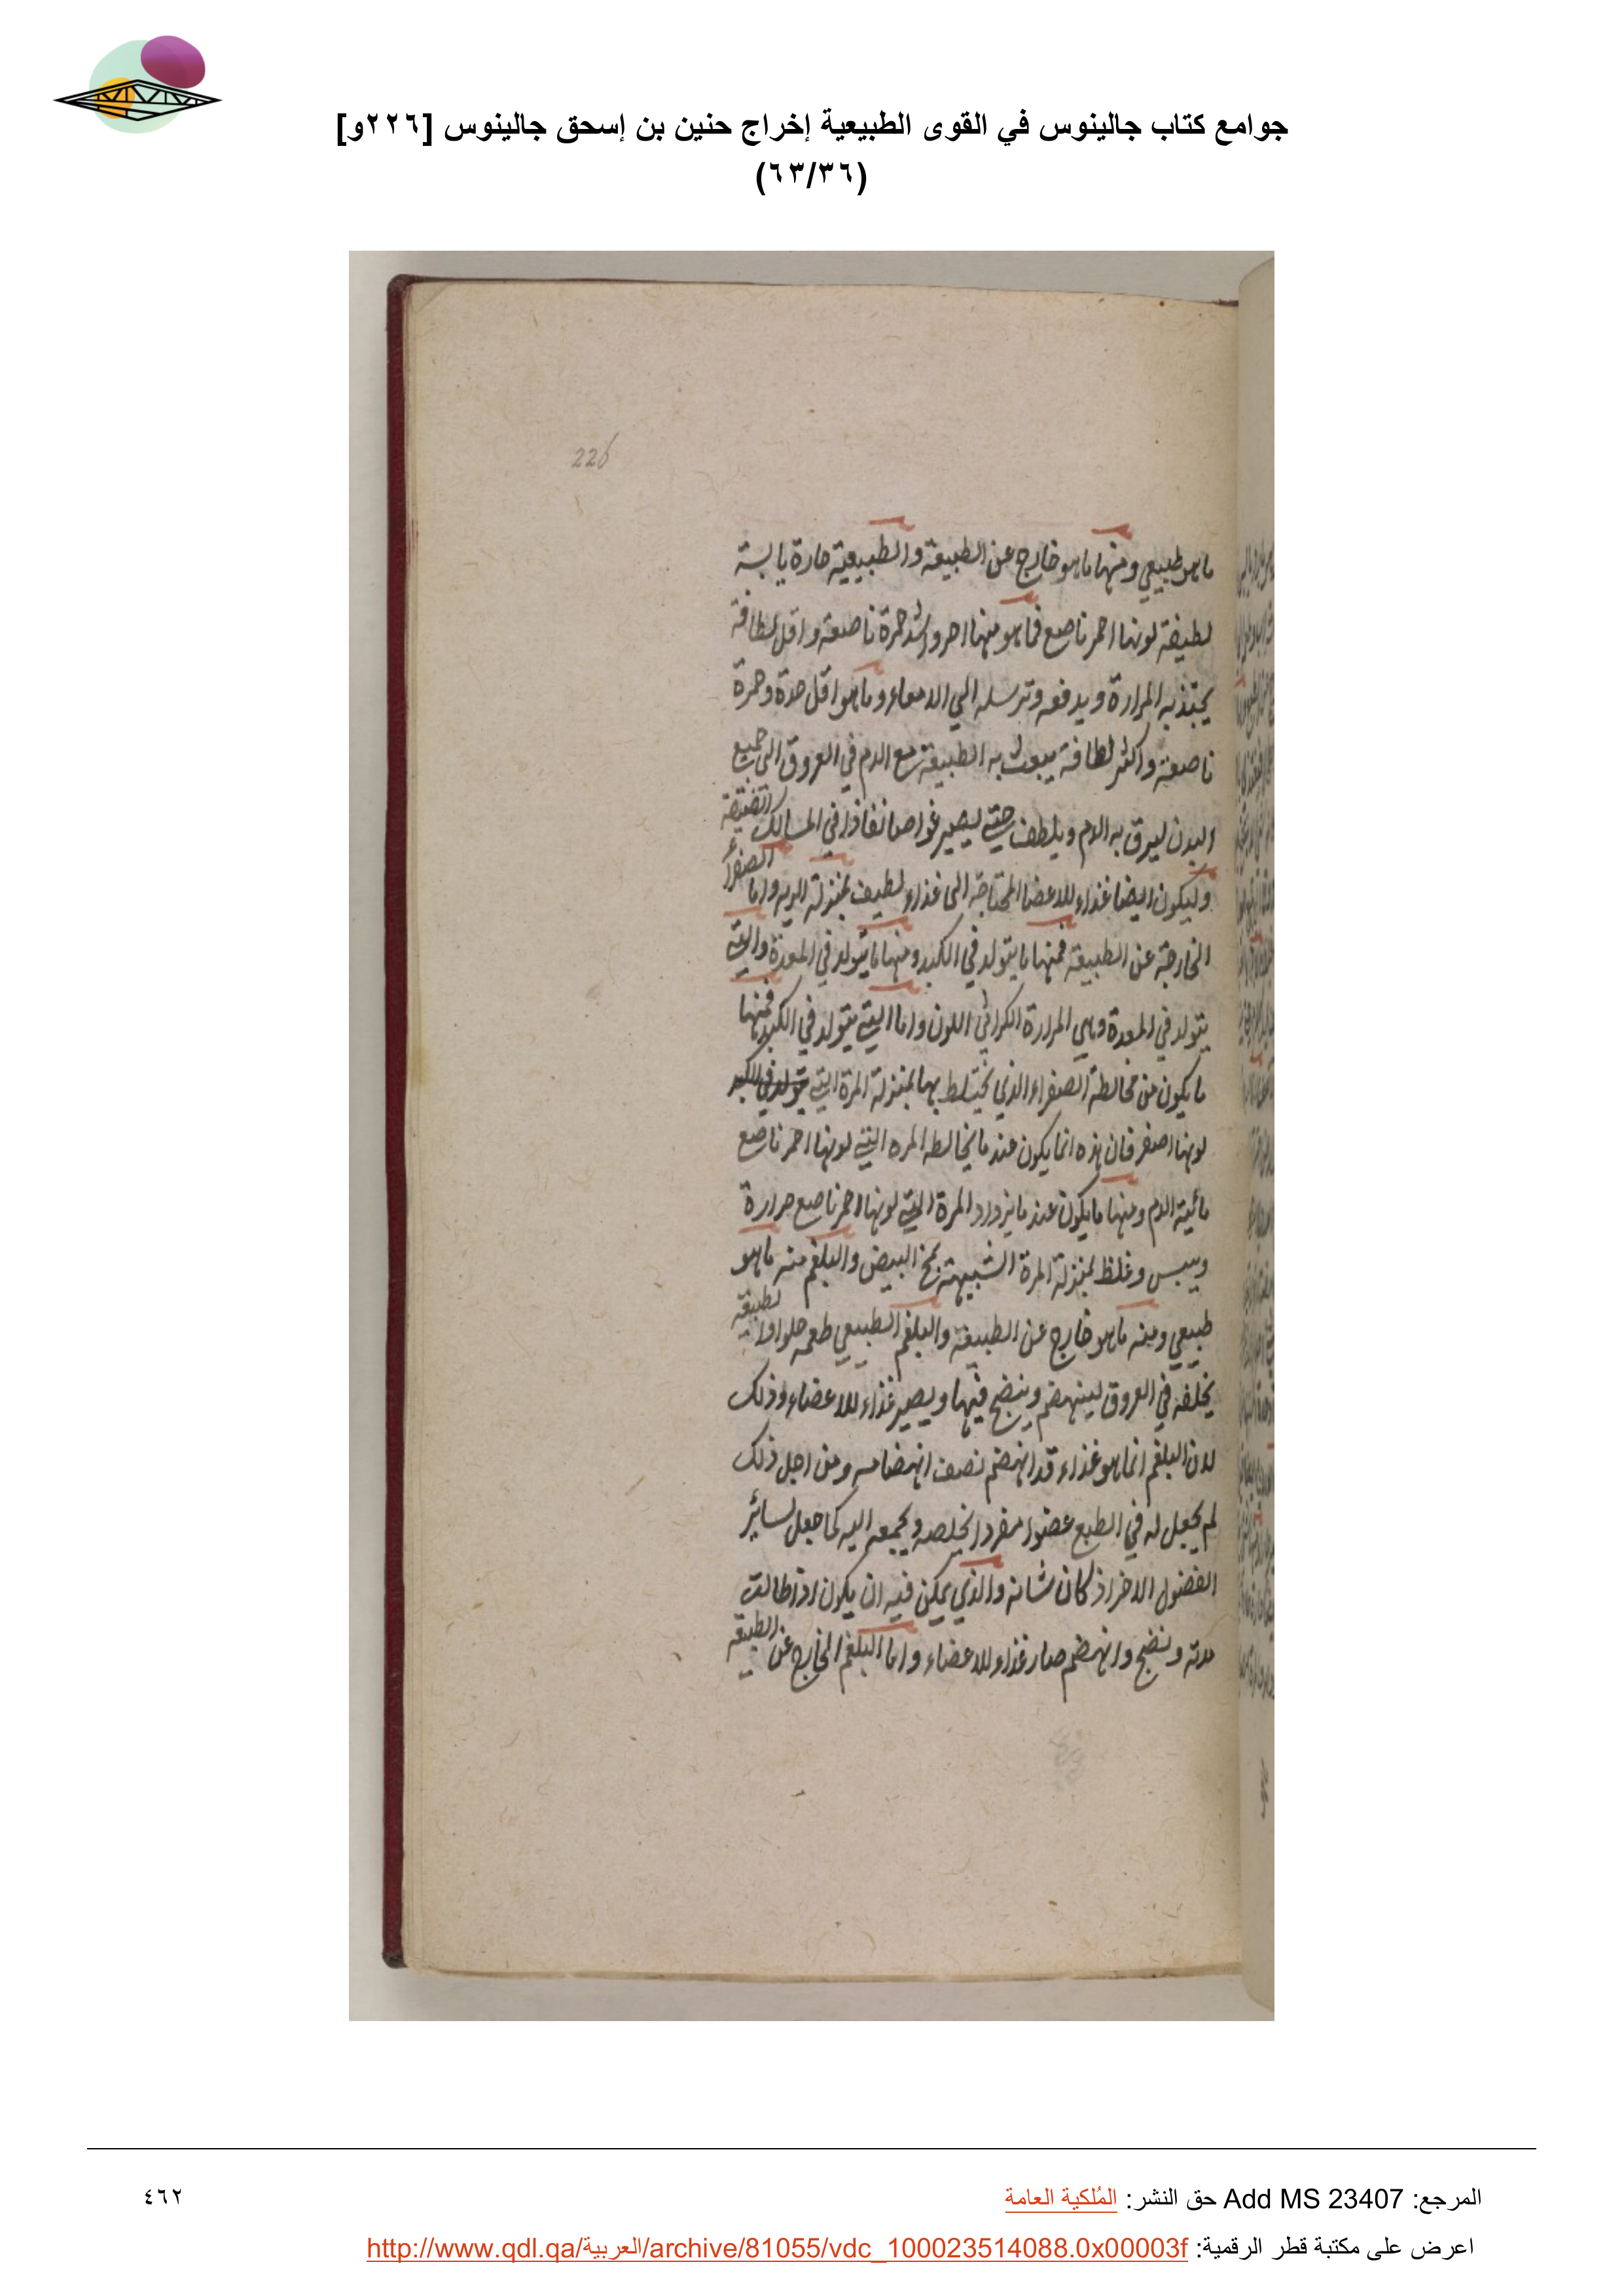 جوامع كتاب جالينوس في القوى الطبيعية إخراج حنين بن إسحق جالينوس [٢٢٦و]
(٦٣/٣٦)
226
ما هو طبيعي ومنها ما هو خارج عن الطبيعة والطبيعية حارة يابسة
لطيفة لونها احمر ناصع فما هو منها احر واشد حمرة ناصعة واقل لطافة
يجتذبه المرارة ويدفعه وترسله الي الامعاء وما هو اقل حدة وحمرة
ناصعة واكثر لطافة يبعث به الطبيعة مع الدم في العروق الى جميع
البدن ليرق به الدم ويلطف حتي يصير غواصا نفاذا في المسالك الضيقة
وليكون ايضا غذاء للاعضا المحتاجة الى غذاء لطيف بمنزلة الريه واما الصفرا
الخارجة عن الطبيعة فمنها ما يتولد في الكبد ومنها ما يتولد في المعدة والتي
يتولد في المعدة وهي المرارة الكراثي اللون واما التي يتولد في الكبد فمنها
ما يكون من مخالطة الصفراء الذي يختلط بها بمنزلة المرة التي يتولد في الكبد
لونها اصفر فان هذه انما يكون عند ما يخالطه المره التي لونها احمر ناصع
مائية الدم ومنها ما يكون عند ما يزداد المرة التي لونها احمر ناصع حرارة
ويبس وغلظ بمنزلة المرة الشبيهة بمخ البيض والبلغم منه ما هو
طبيعي ومنه ما هو خارج عن الطبيعة والبلغم الطبيعي طعمه حلو لطبيعة
يخلفه في العروق لينهضم وينضج فيها ويصير غذاء للاعضاء وذلك
لان البلغم انما هو غذاء قد انهضم نصف انهضامه ومن اجل ذلك
لم يجعل له في الطبع عضوا مفردا يخلصه ويجمعه اليه كما جعل لسائر
الفضول الاخر اذ كان شانه والذي يمكن فيه ان يكون اذا طالت
مدته ونضج وانهضم صار غذاء للاعضاء واما البلغم الخارج عن الطبيعة
المرجع: Add MS 23407 حق النشر: المُلكية العامة
٤٦٢
اعرض على مكتبة قطر الرقمية: http://www.qdl.qa/العربية/archive/81055/vdc_100023514088.0x00003f